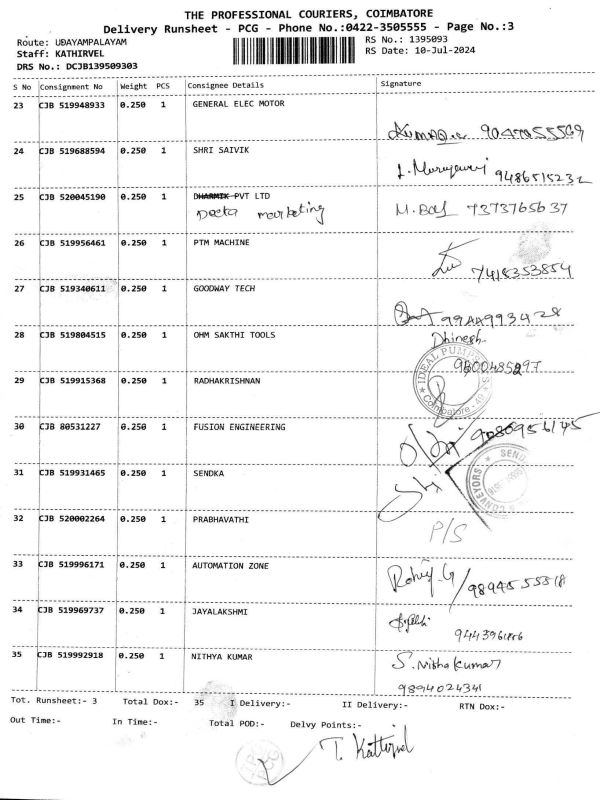 THE PROFESSIONAL COURIERS, COIMBATORE
Delivery Runsheet - PCG - Phone No.:0422-3505555 - Page No.:3
Route: UDAYAMPALAYAM
RS No.: 1395093
Staff: KATHIRVEL
RS Date: 10-Jul-2024
DRS No.: DCJB139509303
S No Consignment No Weight PCS Consignee Details Signature
23 CJB 519948933 0.250 1 GENERAL ELEC MOTOR
24 CJB 519688594 0.250 1 SHRI SAIVIK
9486515232
25 CJB 520045190 0.250 1 DHARMIK PVT LTD
marketing 7373765637
26 CJB 519956461 0.250 1 PTM MACHINE
7418353854
27 CJB 519340611 0.250 1 GOODWAY TECH
28 CJB 519804515 0.250 1 OHM SAKTHI TOOLS
Dhinesh
IDEAL PUMPS
Coimbatore - 49
29 CJB 519915368 0.250 1 RADHAKRISHNAN
30 CJB 80531227 0.250 1 FUSION ENGINEERING
31 CJB 519931465 0.250 1 SENDKA
SEND
CONVEYORS
32 CJB 520002264 0.250 1 PRABHAVATHI
P/S
33 CJB 519996171 0.250 1 AUTOMATION ZONE
34 CJB 519969737 0.250 1 JAYALAKSHMI
35 CJB 519992918 0.250 1 NITHYA KUMAR
S. Nisha Kumar
9894024341
Tot. Runsheet:- 3 Total Dox:- 35 I Delivery:- II Delivery:- RTN Dox:-
Out Time:- In Time:- Total POD:- Delvy Points:-